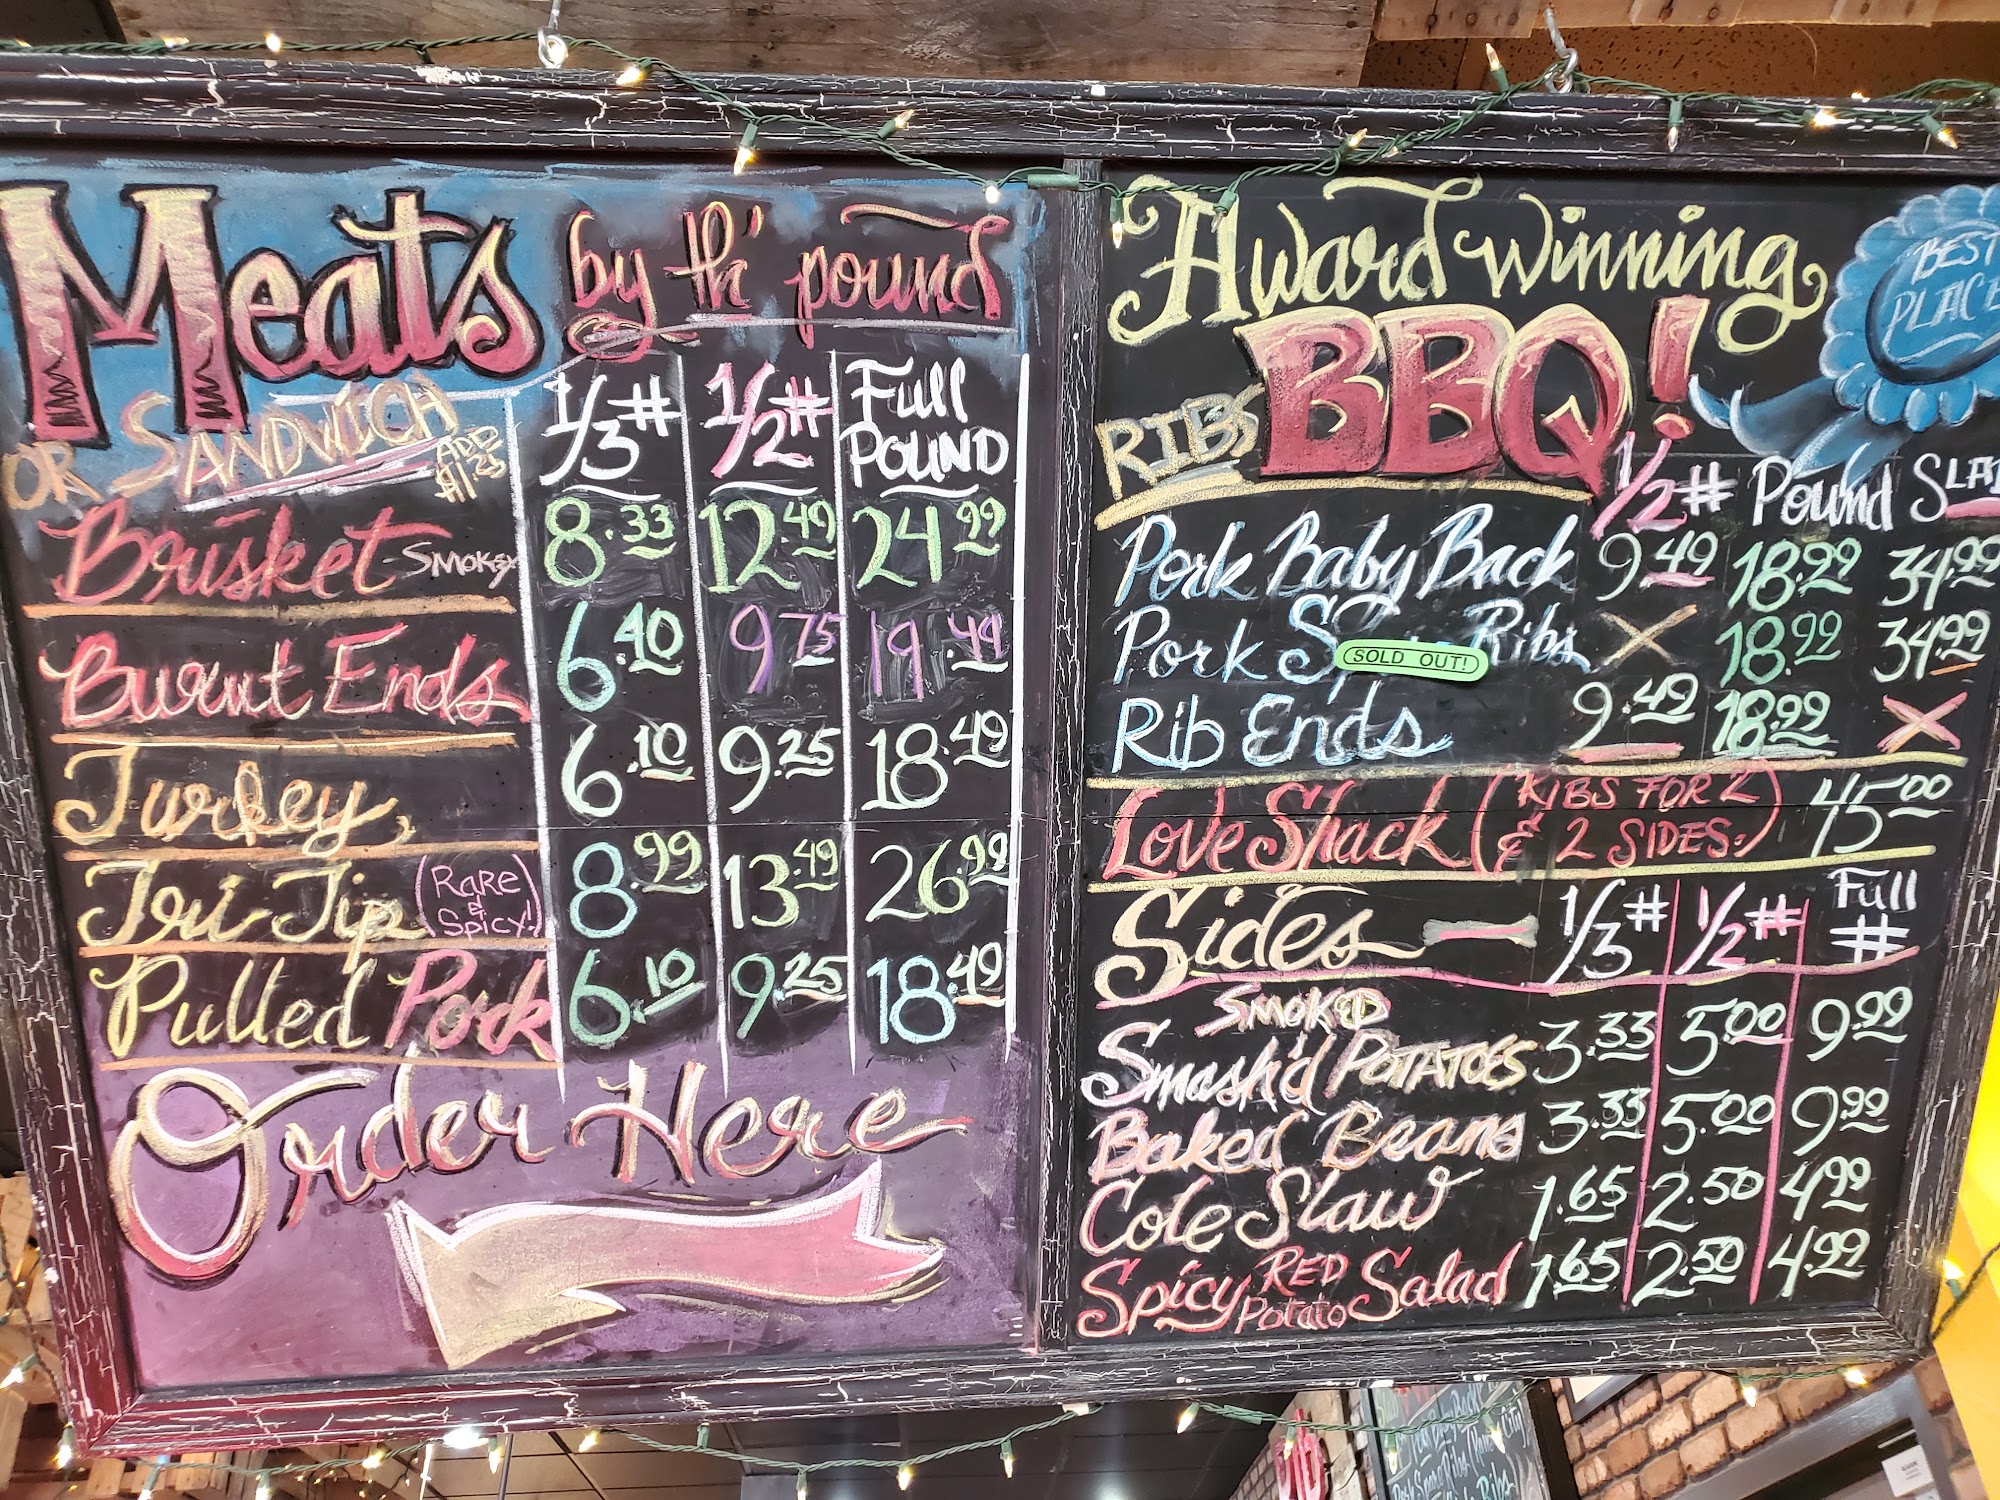 Meats by th' pound
OR SANDWICH ADD $1.25
1/3# 1/2# Full POUND
Brisket SMOKEY 8.33 12.49 24.99
Burnt Ends 6.40 9.75 19.49
Turkey 6.10 9.25 18.49
Tri Tip (RARE & SPICY!) 8.99 13.49 26.99
Pulled Pork 6.10 9.25 18.49
Order Here
Award Winning
BBQ!
BEST
PLACE
RIBS 1/2# Pound SLAB
Pork Baby Back 9.49 18.99 34.99
Pork Ribs X 18.99 34.99
SOLD OUT!
Rib Ends 9.49 18.99 X
Love Shack (RIBS FOR 2 & 2 SIDES.) 45.00
Sides — 1/3# 1/2# Full #
SMOKED
Smash'd POTATOES 3.33 5.00 9.99
Baked Beans 3.33 5.00 9.99
Cole Slaw 1.65 2.50 4.99
Spicy RED Potato Salad 1.65 2.50 4.99